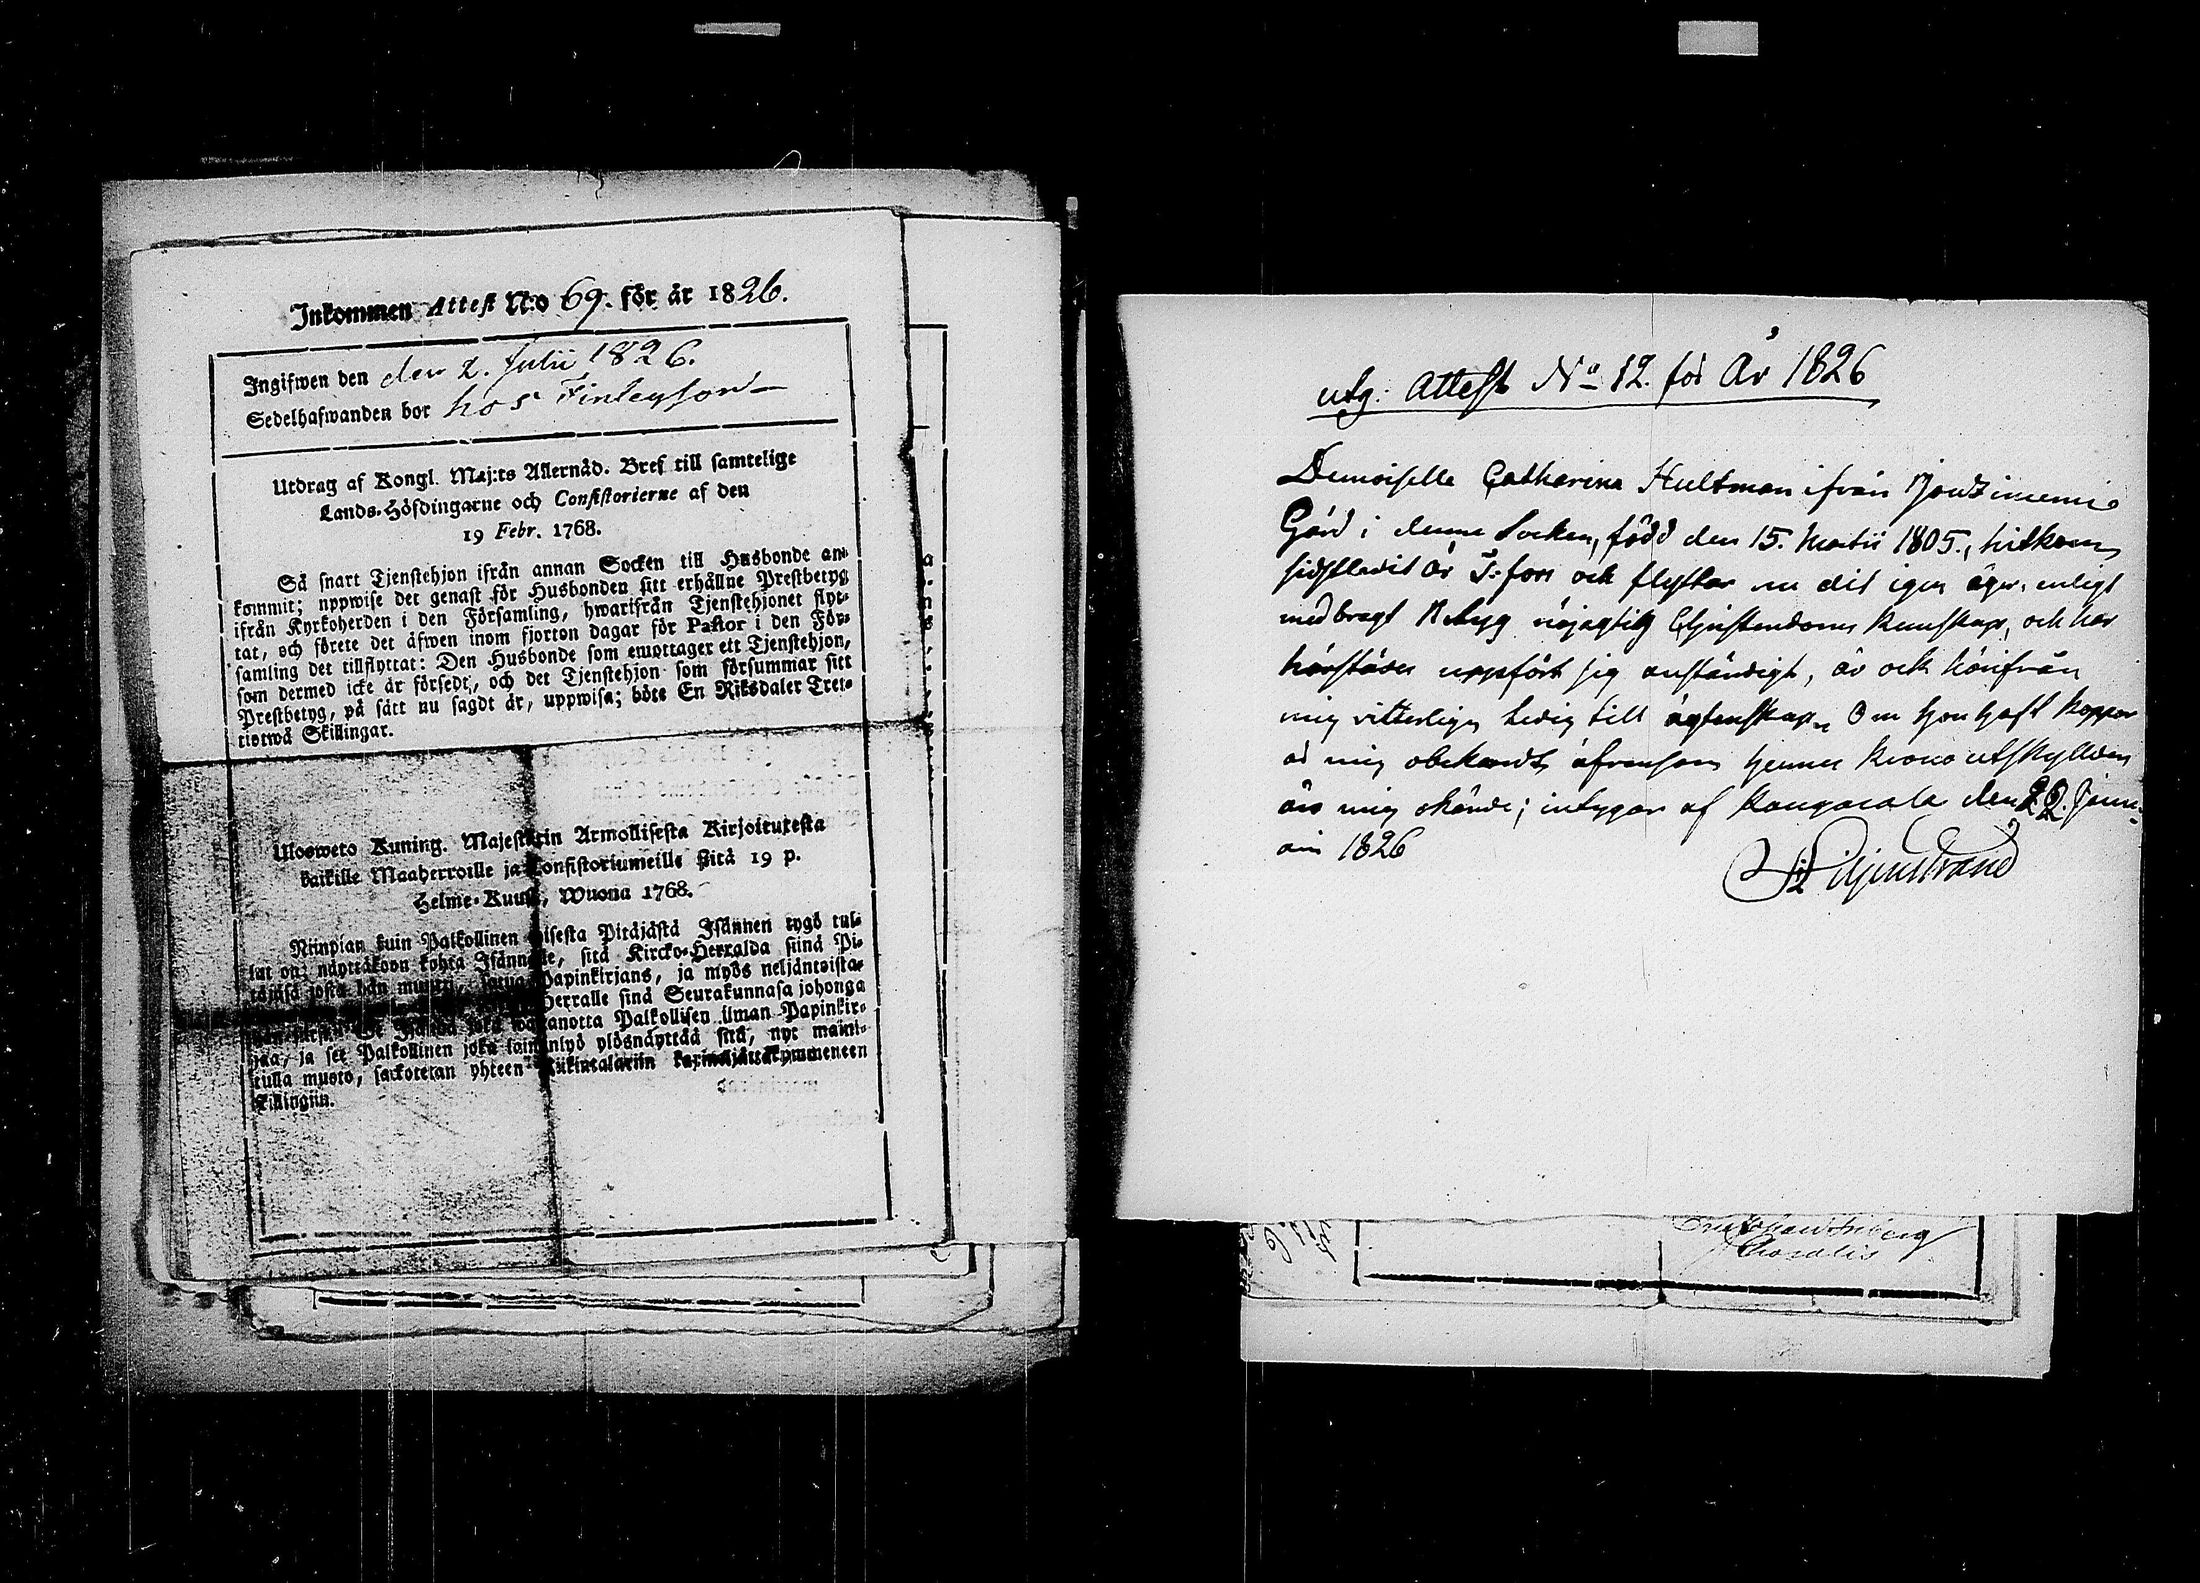 Inkommen Attest N:o 69. för år 1826.
Ingifwen den den 2. Julii 1826.
Sedelhafwanden bor hos Finleyson
Utdrag af Kongl. Maj:ts Allernåd. Bref till samtelige
Lands-Höfdingarne och Consistorierne af den
19 Febr. 1768.
Så snart Tjenstehjon ifrån annan Socken till Husbonde an-
kommit; uppwise det genast för Husbonden sitt erhållne Prestbetyg
ifrån Kyrkoherden i den Församling, hwarifrån Tjenstehjonet flyt-
tat, och förete det äfwen inom fjorton dagar för Pastor i den För-
samling det tillflyttat: Den Husbonde som emottager ett Tjenstehjon,
som dermed icke är försedt, och det Tjenstehjon som försummar sitt
Prestbetyg, på sätt nu sagdt är, uppwisa; böte En Riksdaler Tret-
tiotwå Skillingar.
Ulosweto Kuning. Majestetin Armollisesta Kirjoituxesta
kaikille Maaherroille ja Consistoriumeille siitä 19 p.
Helme-Kuusa, Wuona 1768.
Niinpian kuin Palkollinen toisesta Pitäjästä Isännen tygö tul-
lut on; näyttäköön kohta Isännälle, sitä Kircko-Herralda siinä Pi-
täjäsä josta hän muutti, Papinkirjans, ja myös neljäntoista-
Herralle siinä Seurakunnasa johonga
Palkollisen ilman Papinkir-
jaa, ja se Palkollinen joka laiminlyö ylösnäyttää sitä, nyt maini-
tulla muoto, sackotetan yhteen Rikintalariin
Killingiin.
utg. Attest No 12. för År 1826
Demoiselle Catharina Hultman ifrån
Gård i denna Socken, född den 15. Martii 1805., hitkom
sidstledit år T:fors och flyttar nu dit igen äger, enligt
medbragt Betyg nöjagtig Christendoms kunskap, och har
härstädes uppfört sig anständigt, är ock härifrån
mig vitterligen ledig till ägtenskap. Om hon haft koppor
är mig obekandt, äfvensom hennes krono utskylder
äro mig okände; intygar af Kangasala den 22. Junii
1826